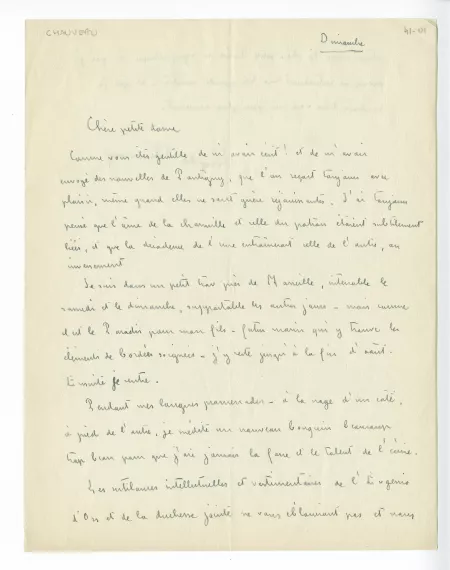 CHAUVEAU
41-01
Dimanche
Chère petite dame
Comme vous êtes gentille de m'avoir écrit ! et de m'avoir
envoyé des nouvelles de Pontigny, que l'on reçoit toujours avec
plaisir, même quand elles ne sont guère réjouissantes. J'ai toujours
pensé que l'âme de la charmille et celle des patrons étaient subtilement
liées, et que la décadence de l'une entraînait celle de l'autre, ou
inversement
Je suis dans un petit trou près de Marseille, intenable le
samedi et le dimanche, supportable les autres jours - mais comme
c'est le Paradis pour mon fils - futur marin qui y trouve les
éléments de bordées soignées - j'y reste jusqu'à la fin d'août.
Ensuite je rentre.
Pendant mes longues promenades - à la nage d'un côté,
à pied de l'autre, je médite un nouveau bouquin beaucoup
trop beau pour que j'aie jamais la force et le talent de l'écrire.
Les intellectuelles et vestimentaires de l'Eugenio
d'Ors et de la duchesse jointe ne vous étonnent pas et nous